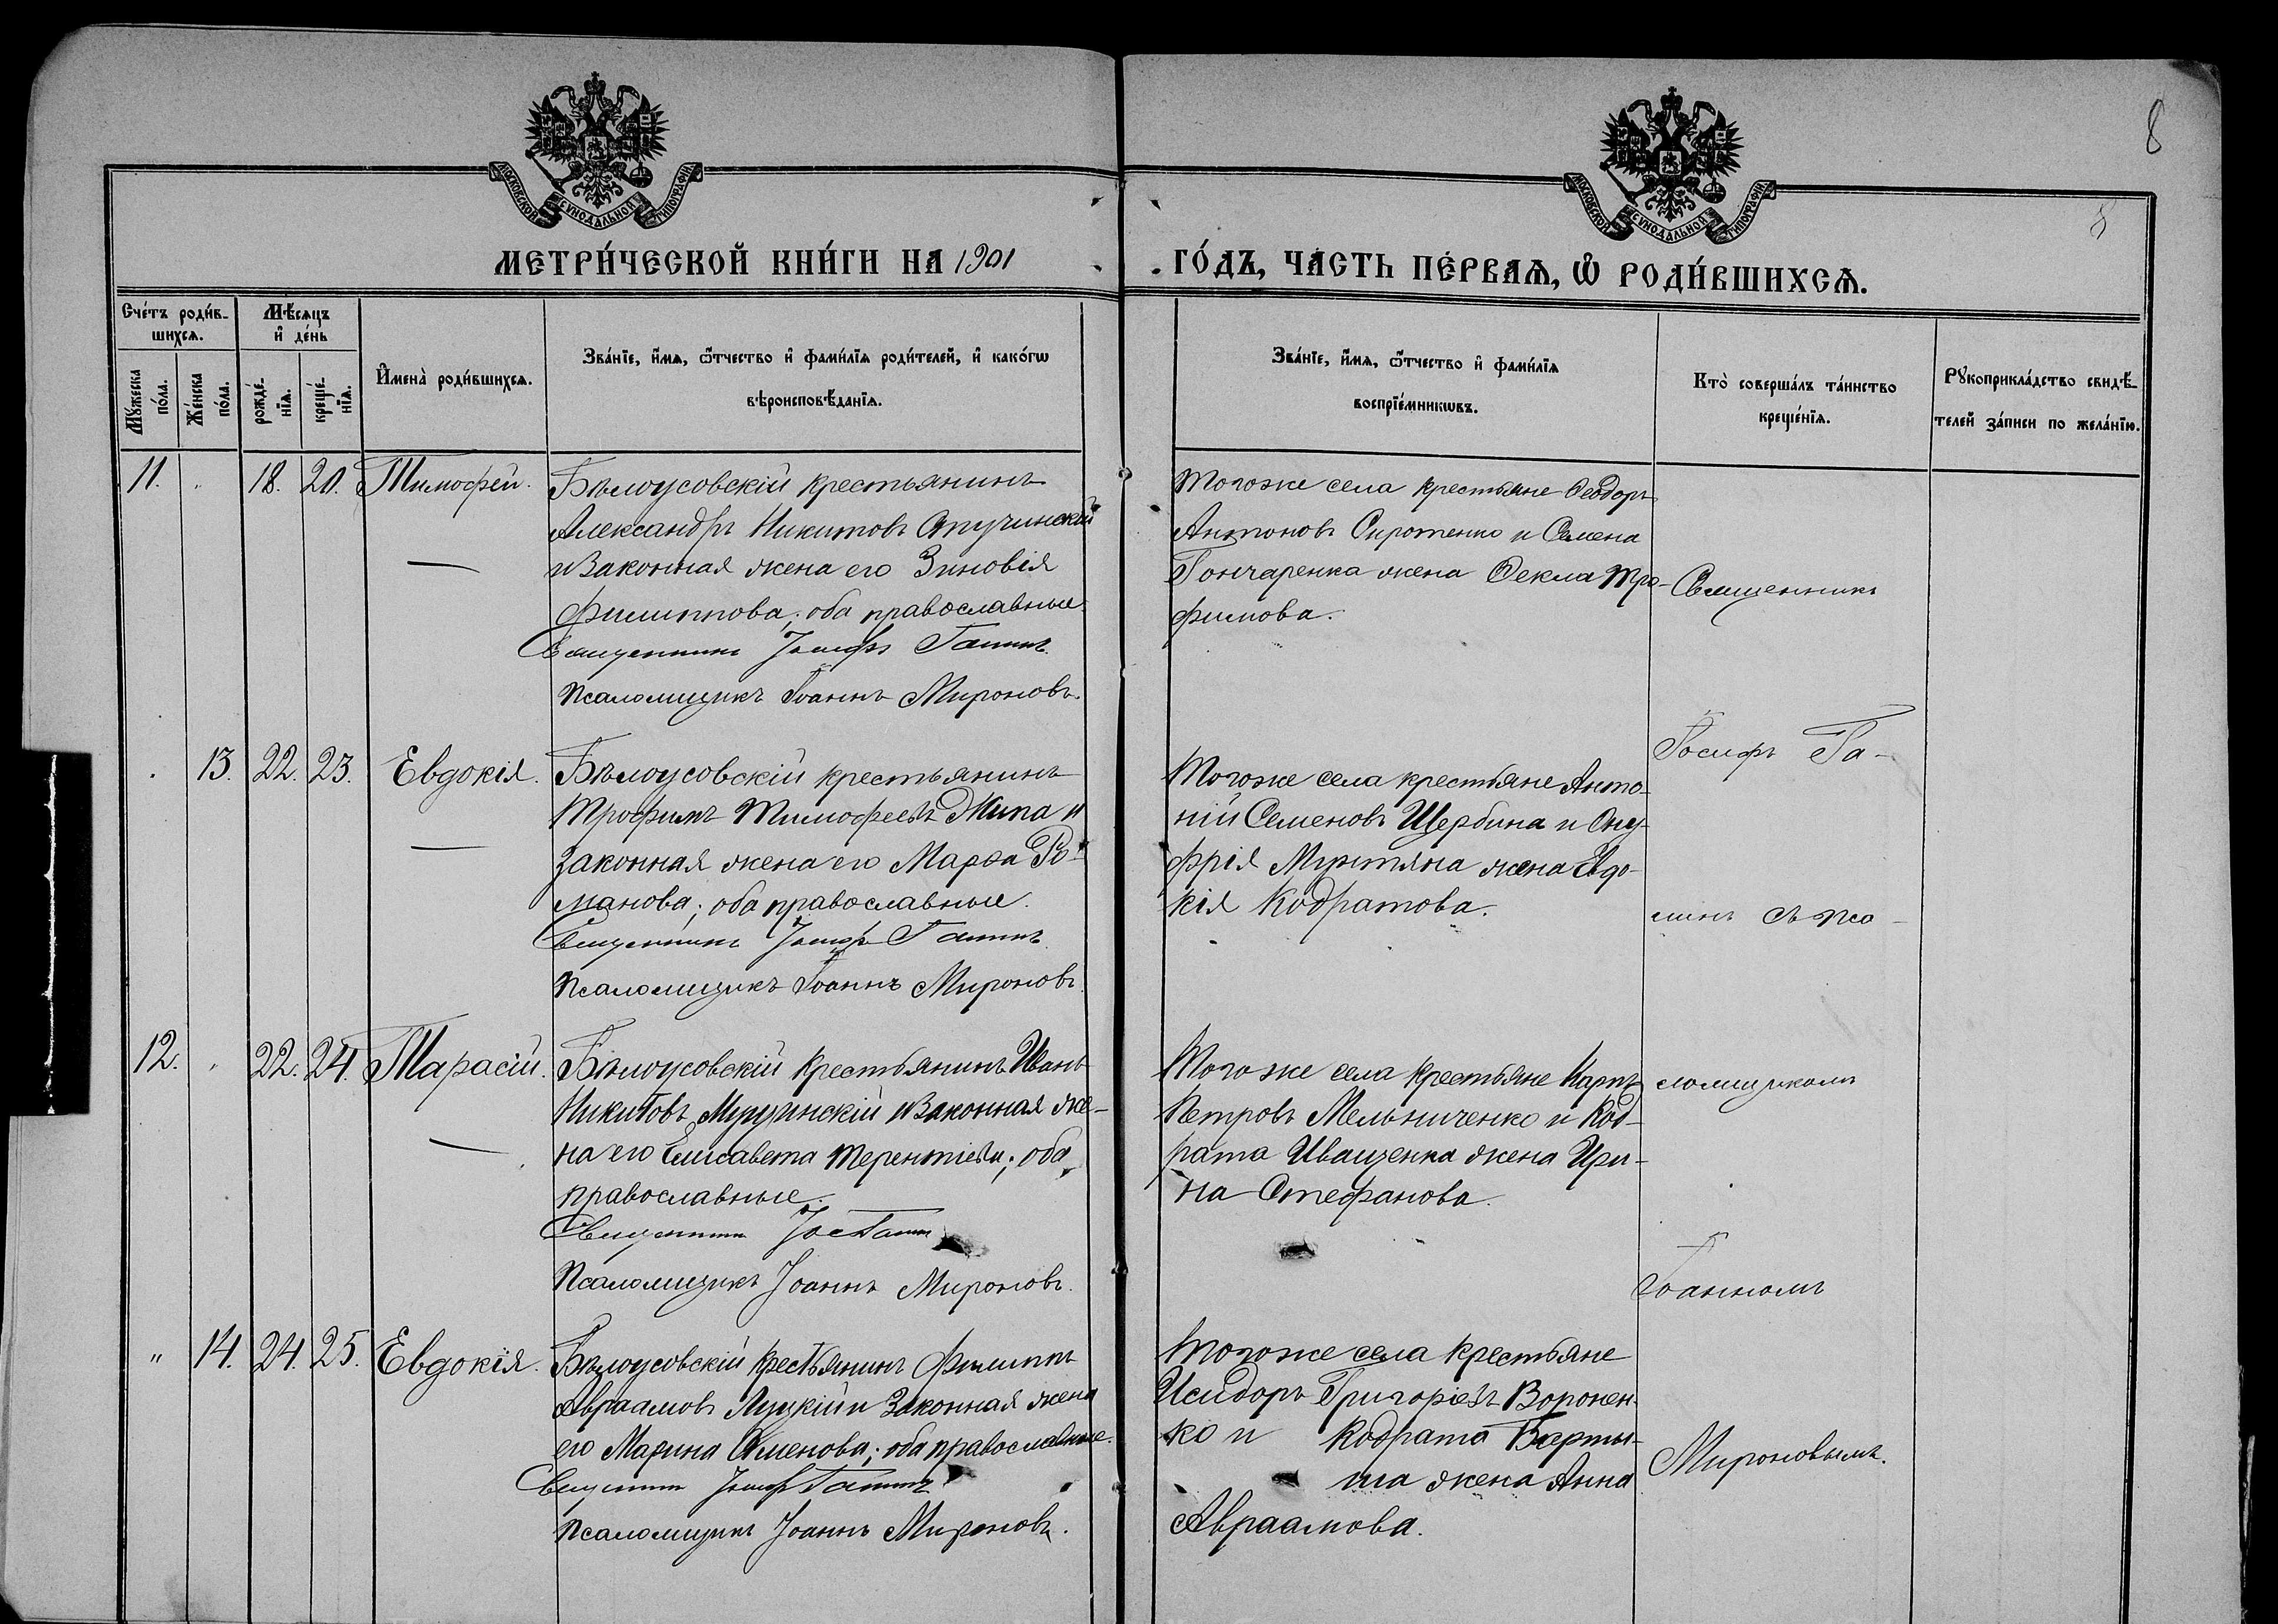 8
8
МОСКОВСКОЙ СѴНОДАЛЬНОЙ ТИПОГРАФІИ
МОСКОВСКОЙ СѴНОДАЛЬНОЙ ТИПОГРАФІИ
МЕТРИ́ЧЕСКОЙ КНИ́ГИ НА 1901
ГО́ДЪ, ЧА́СТЬ ПЕ́РВАѦ, Ѿ РОДИ́ВШИХСѦ.
Сче́тъ роди́в-
шихсѧ.
Мꙋ́жеска
по́ла.
Же́нска
по́ла.
Мѣ́сѧцъ
и҆ де́нь
рожде́-
нїѧ.
креще́-
нїѧ.
И҆мена̀ роди́вшихсѧ.
Зва́нїе, и҆́мѧ, ѻ҆́тчество и҆ фами́лїѧ роди́телей, и҆ како́гѡ
вѣроисповѣ́данїѧ.
Зва́нїе, и҆́мѧ, ѻ҆́тчество и҆ фами́лїѧ
воспрїе́мникѡвъ.
Кто̀ соверша́лъ та́инство
креще́нїѧ.
Рꙋкоприкла́дство свидѣ́-
телей за́писи по жела́нїю.
11. " 18. 20. Тимофей.
Бѣлоусовскій крестьянинъ
Александръ Никитовъ
и законная жена его Зиновія
Филиппова; оба православные.
Священникъ Іосифъ Ганинъ
Псаломщикъ Іоаннъ Мироновъ.
Тогоже села крестьяне Ѳеодоръ
Антоновъ Сиротенко и Семена
Гончаренка жена Ѳекла Тро-
фимова.
13. 22. 23. Евдокія.
Бѣлоусовскій крестьянинъ
Трофимъ Тимофеевъ Жила и
законная жена его Марѳа Ро-
манова; оба православные.
Священникъ Іосифъ Ганинъ
Псаломщикъ Іоаннъ Мироновъ.
Тогоже села крестьяне Анто-
ній Семеновъ Щербина и Ону-
фрія Мунтяна жена Евдо-
кія Кодратова.
12. " 22. 24. Тарасій.
Бѣлоусовскій крестьянинъ Иванъ
Никитовъ и законная же-
на его Елисавета Терентіева; оба
православные.
Священникъ Іос Ганин
Псаломщикъ Іоаннъ Мироновъ.
Тогоже села крестьяне Карпъ
Петровъ Мельниченко и Код-
рата Иващенка жена Ири-
на Стефанова.
" 14. 24. 25. Евдокія.
Бѣлоусовскій крестьянинъ Филиппъ
Авраамовъ Луцкій и законная жена
его Марина Семенова; оба православные.
Священник Іосиф Ганинъ
Псаломщикъ Іоаннъ Мироновъ.
Тогоже села крестьяне
Исидоръ Григоріевъ Воронен-
ко и Кодрата Барты-
ша жена Анна
Авраамова.
Священникъ
Іосифъ Га-
нинъ съ пса-
ломщикомъ
Іоанномъ
Мироновымъ.